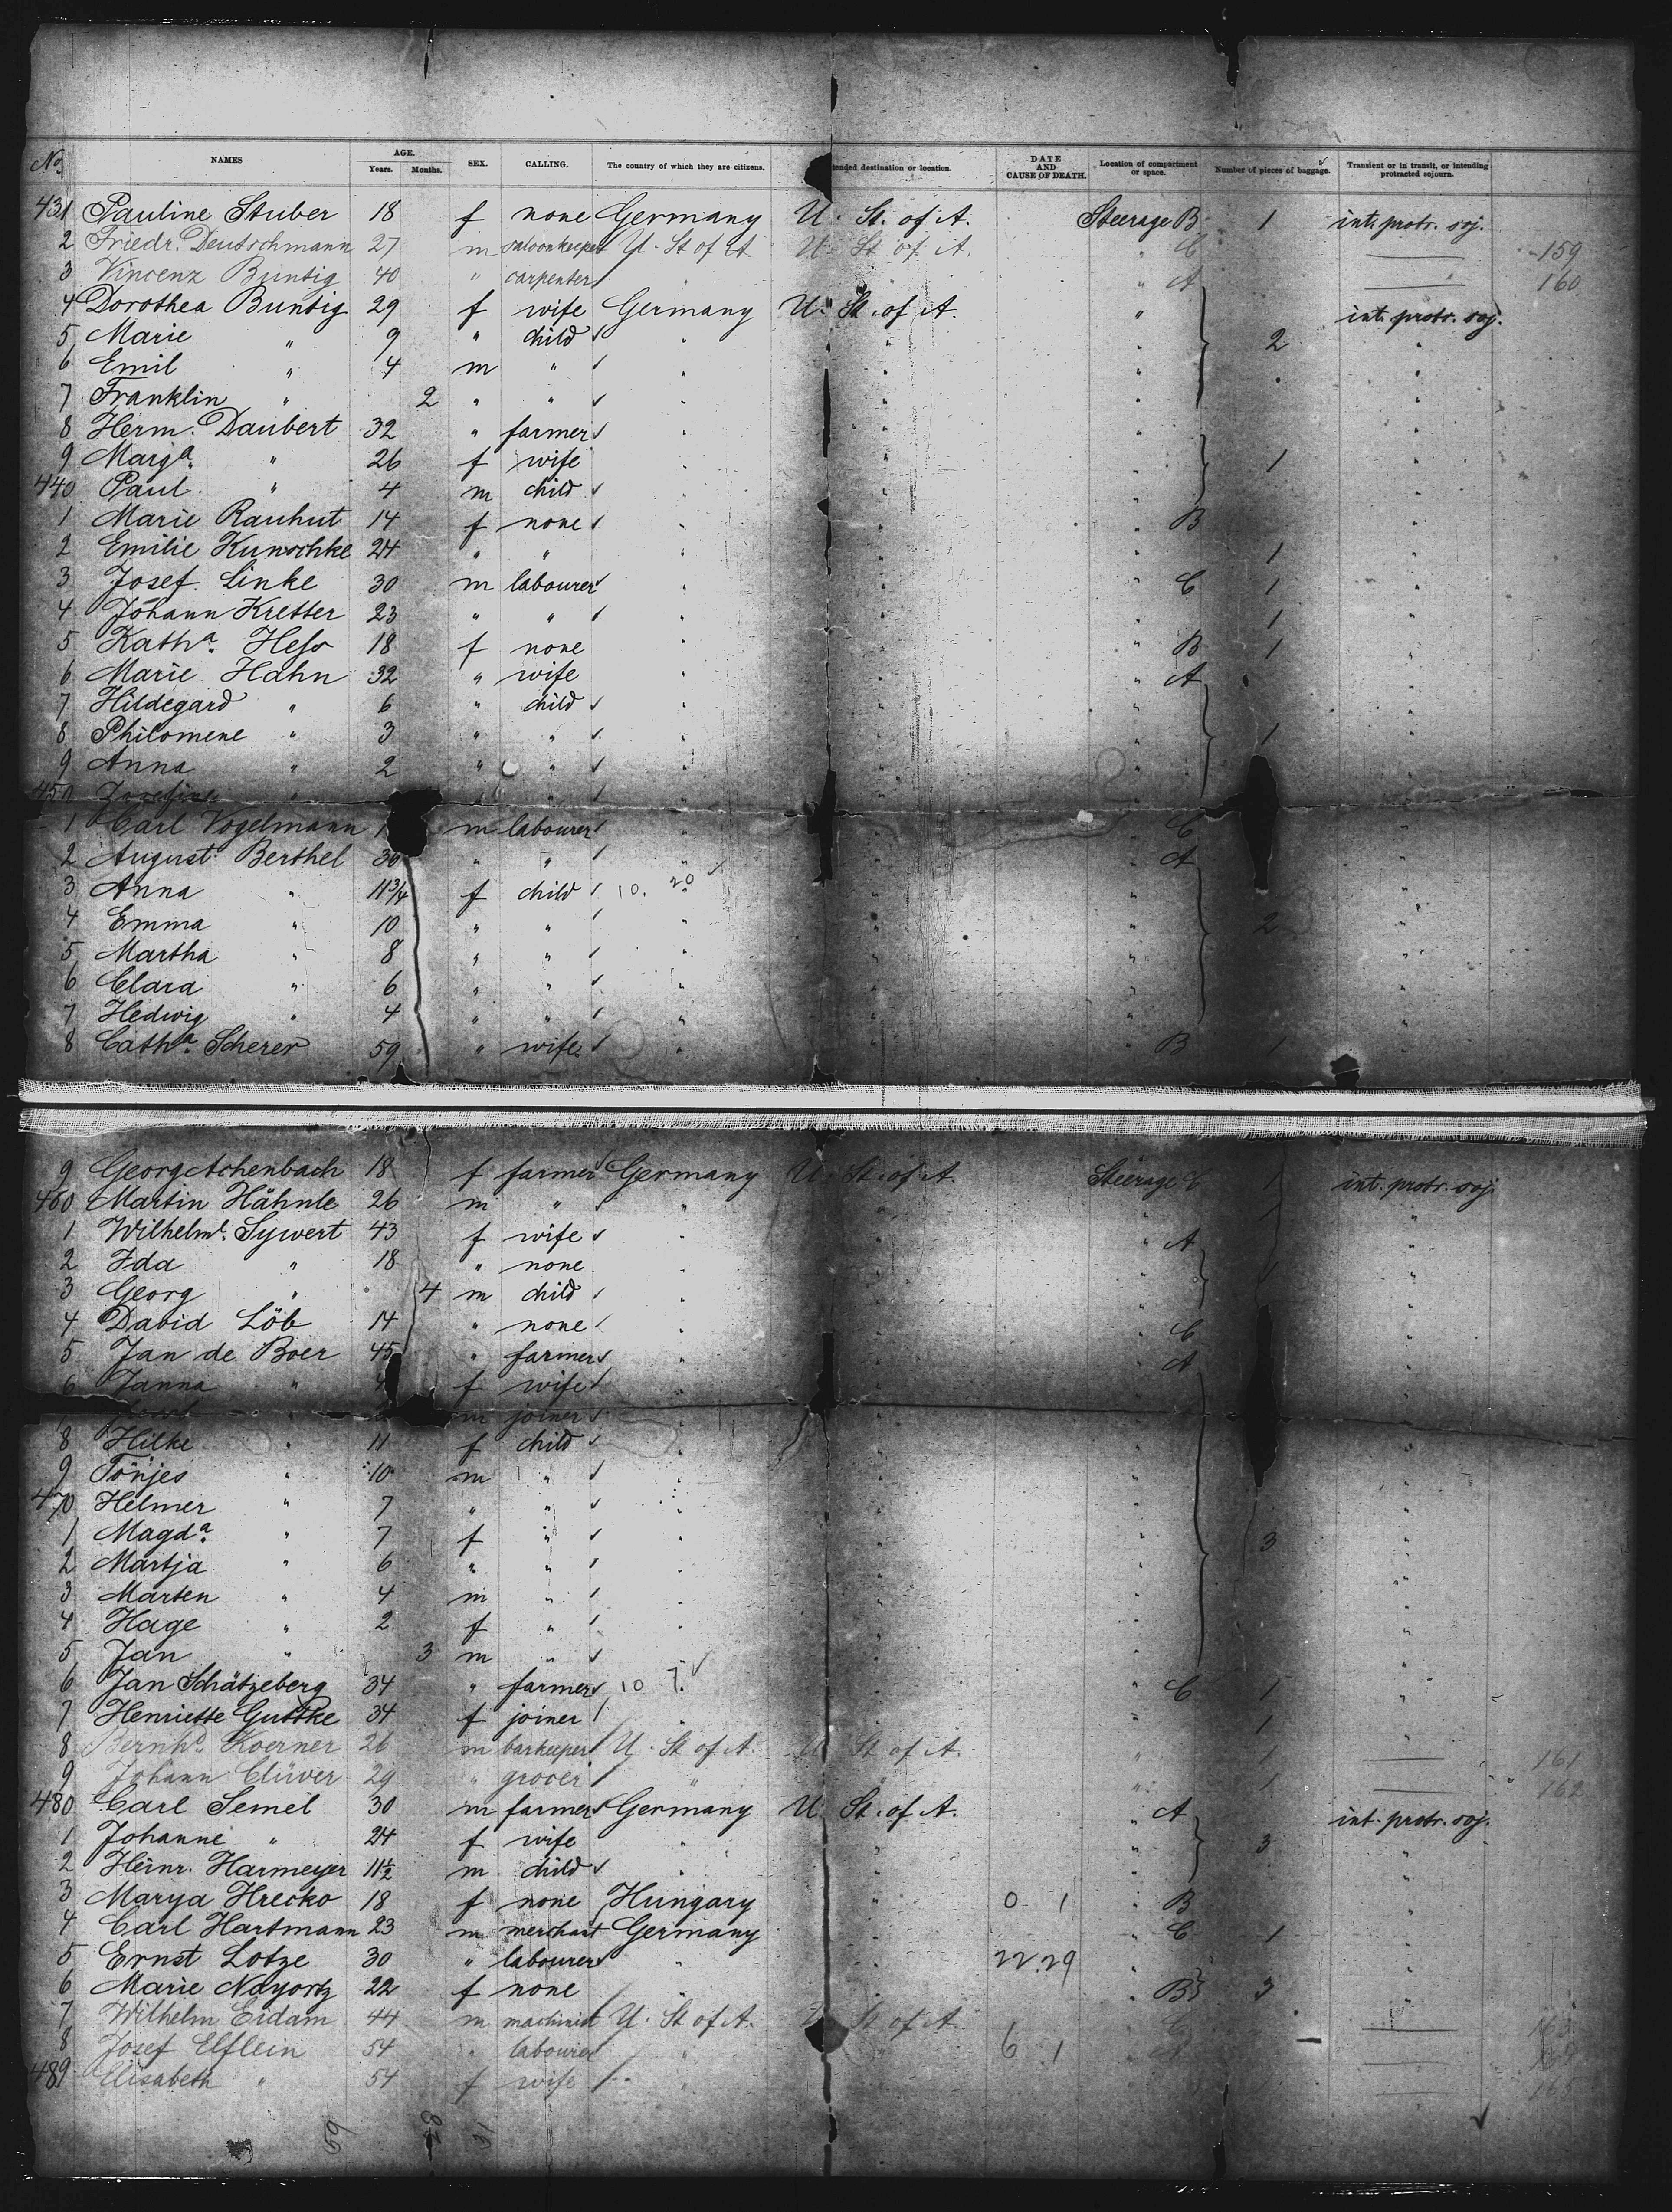 No. NAMES AGE. Years. Months. SEX. CALLING. The country of which they are citizens. tended destination or location. DATE AND CAUSE OF DEATH. Location of compartment or space. Number of pieces of baggage. Transient or in transit, or intending protracted sojourn.
431 Pauline Stuber 18 f none Germany U. St. of A. Steerage B 1 int. protr. soj.
2 Friedr. Deutschmann 27 m saloonkeeper U. St of A U. St of A. " C — 159
3 Vincenz Buntig 40 " carpenter " A — 160
4 Dorothea Buntig 29 f wife Germany U. St. of A. " int. protr. soj.
5 Marie " 9 " child " " " 2 "
6 Emil " 4 m " " " " "
7 Franklin " 2 " " " " " "
8 Herm. Daubert 32 " farmer " " " "
9 Marga. " 26 f wife " " " 1 "
440 Paul " 4 m child " " " "
1 Marie Rauhut 14 f none " " " B "
2 Emilie Kunschke 24 " " " " " 1 "
3 Josef Linke 30 m labourer " " " C 1 "
4 Johann Kretter 23 " " " " " 1 "
5 Katha. Hess 18 f none " " " B 1 "
6 Marie Hahn 32 " wife " " " A "
7 Hildegard " 6 " child " " " "
8 Philomene " 3 " " " " " 1 "
9 Anna " 2 " " " " " "
450 Josefine " " "
1 Carl Vogelmann m labourer " " " C
2 August Berthel 30 " " " " " A "
3 Anna " 11 3/4 f child 10. 20 " " "
4 Emma " 10 " " " " " 2 "
5 Martha " 8 " " " " " "
6 Clara " 6 " " " " " "
7 Hedwig " 4 " " " " " "
8 Catha. Scherer 59 " wife " " " B 1 "
9 Georg Achenbach 18 f farmer Germany U. St. of A. Steerage C 1 int. protr. soj.
460 Martin Hähnle 26 m " " " " 1 "
1 Wilhelme. Sywert 43 f wife " " " A "
2 Ida " 18 " none " " " "
3 Georg " 4 m child " " " "
4 David Löb 14 " none " " " C "
5 Jan de Boer 45 " farmer " " " A "
6 Janna " 4 f wife " " "
m joiner
8 Hilke " 11 f child " " " "
9 Tönjes " 10 m " " " " "
470 Helmer " 7 " " " " " "
1 Magda. " 7 f " " " " 3 "
2 Martja " 6 " " " " " "
3 Marten " 4 m " " " " "
4 Hage " 2 f " " " " "
5 Jan " 3 m " " " " "
6 Jan Schätzeberg 34 " farmer 10 7. " " C 1 "
7 Henriette Guttke 34 f joiner " " " 1 "
8 Bernhd. Koerner 26 m barkeeper U. St of A. U St of A. " 1 — 161
9 Johann Clüver 29 " grocer " " " 1 — 162
480 Carl Semel 30 m farmer Germany U. St. of A. " A int. protr. soj.
1 Johanne " 24 f wife " " " 3 "
2 Heinr. Harmeyer 11 1/2 m child " " " "
3 Marya Hrecko 18 f none Hungary " 0 1 " B "
4 Carl Hartmann 23 m merchant Germany " " C 1 "
5 Ernst Lotze 30 " labourer " " 22.29 " "
6 Marie Nayortz 22 f none " " " B 3 "
7 Wilhelm Eidam 44 m machinist U. St of A. U St of A. " C — 163
8 Josef Elflein 54 " labourer " 6 1 " A —
489 Elisabeth " 54 f wife " — 165